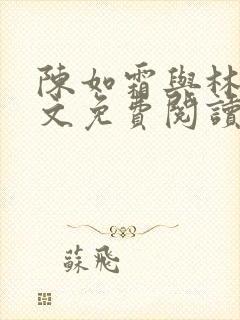 陳如霜與林
文免費閱讀
蘇飛